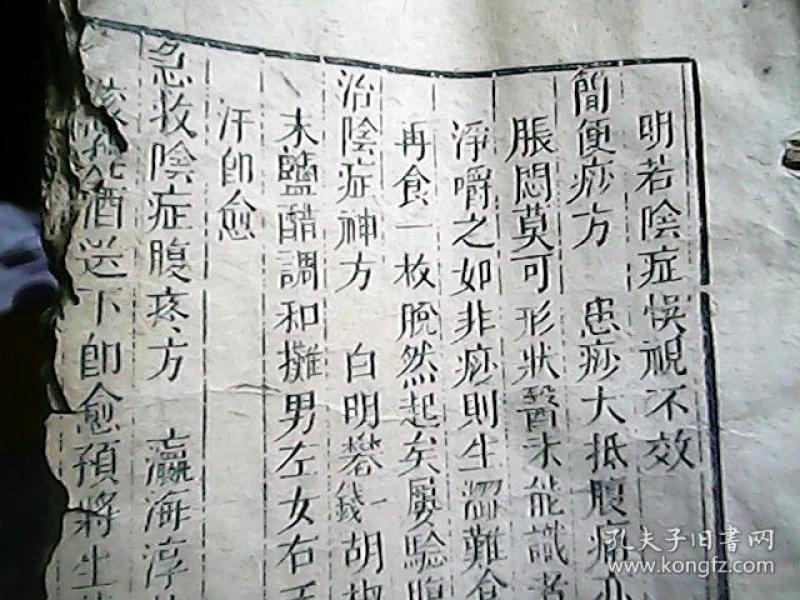 明若陰症悞視不效
簡便痧方 患痧大抵腹痛
脹悶莫可形狀醫未能識者
淨嚼之如非痧則生澀難食
再食一枚脫然起矣屢驗
治陰症神方 白明礬一錢胡椒
末鹽醋調和攤男左女右手
汗卽愈
急救陰症腹疼方 瀛海淳
酒送下卽愈預將生
孔夫子旧書网
www.kongfz.com